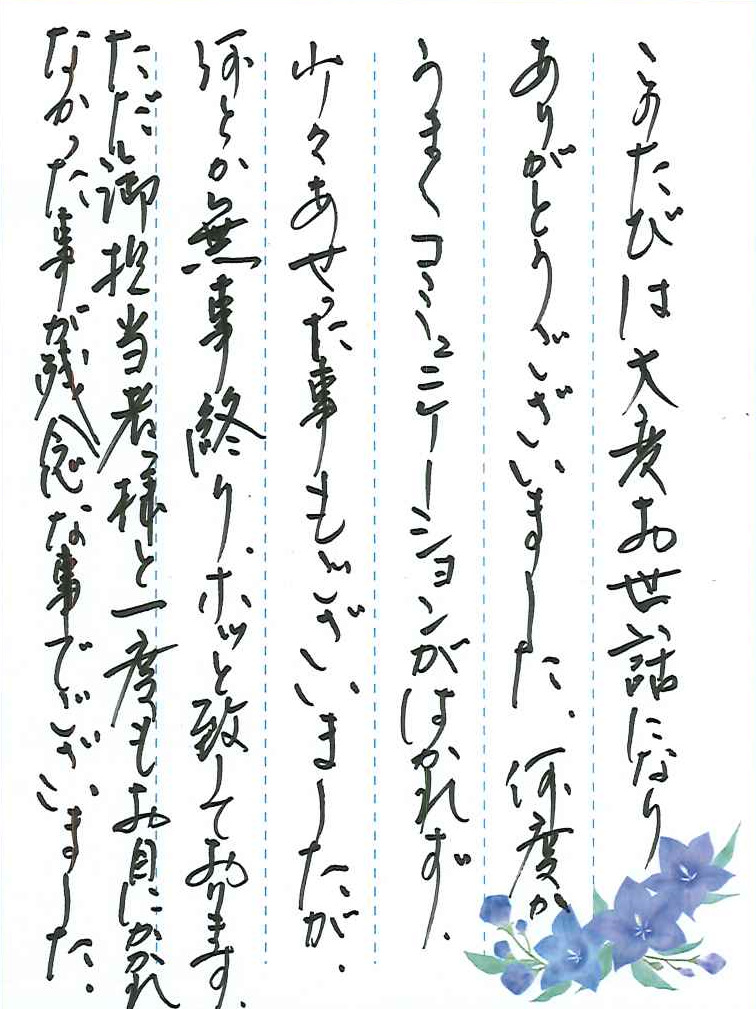 このたびは大変お世話になり
ありがとうございました、何度か
うまくコミュニーションがはかれず、
少々あせった事もございましたが、
何とか無事終り、ホッと致しております、
ただ、御担当者様と一度もお目にかかれ
なかった事が残念な事でございました、